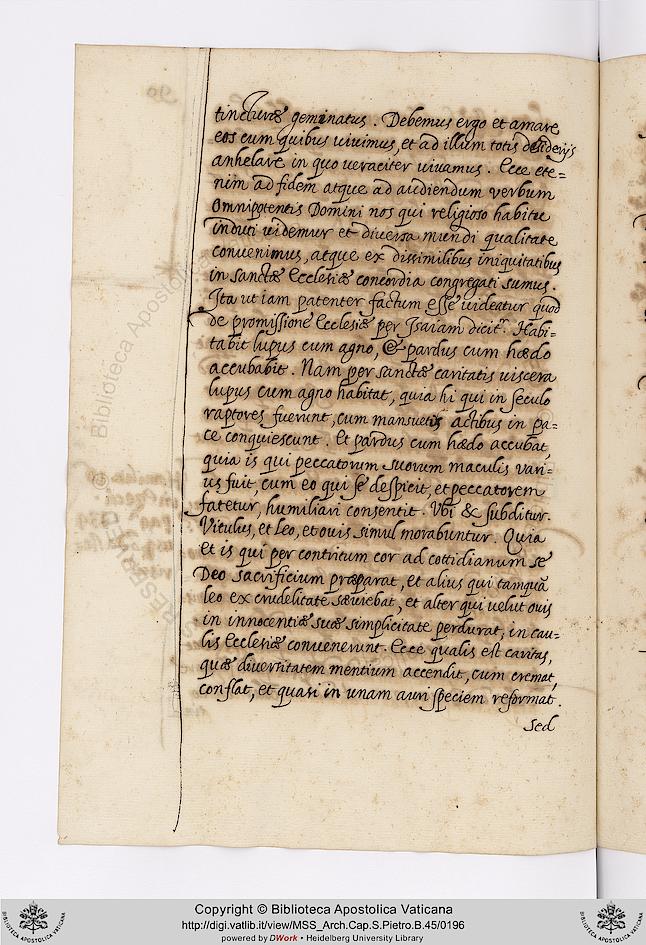 tincturæ geminatus. Debemus ergo et amare
eos cum quibus uiuimus, et ad illum totis desiderijs
anhelare in quo ueraciter uiuamus. Ecce ete=
nim ad fidem atque ad audiendum uerbum
Omnipotentis Domini nos qui religioso habitu
induti uidemur et diuersa mundi qualitate
conuenimus, atque ex dissimilibus iniquitatibus
in sanctæ Ecclesiæ concordia congregati sumus.
Ita ut iam patenter factum esse uideatur quod
de promissione Ecclesiæ per Isaiam dicitr. Habi=
tabit lupus cum agno, & pardus cum hædo
accubabit. Nam per sanctæ caritatis uiscera
lupus cum agno habitat, quia hi qui in seculo
raptores fuerunt, cum mansuetis actibus in pa=
ce conquiescunt. Et pardus cum hædo accubat,
quia is qui peccatorum suorum maculis vari=
us fuit, cum eo qui se despicit, et peccatorem
fatetur, humiliari consentit. Vbi & subditur.
Vitulus, et Leo, et ouis simul morabuntur. Quia
et is qui per contritum cor ad cottidianum se
Deo sacrificium præparat, et alius qui tamquã
leo ex crudelitate sæuiebat, et alter qui uelut ouis
in innocentiæ suæ simplicitate perdurat, in cau=
lis Ecclesiæ conuenerunt. Ecce qualis est caritas,
quæ diuersitatem mentium accendit, cum cremat,
conflat, et quasi in unam auri speciem reformat.
Sed
Copyright © Biblioteca Apostolica Vaticana
http://digi.vatlib.it/view/MSS_Arch.Cap.S.Pietro.B.45/0196
powered by DWork • Heidelberg University Library